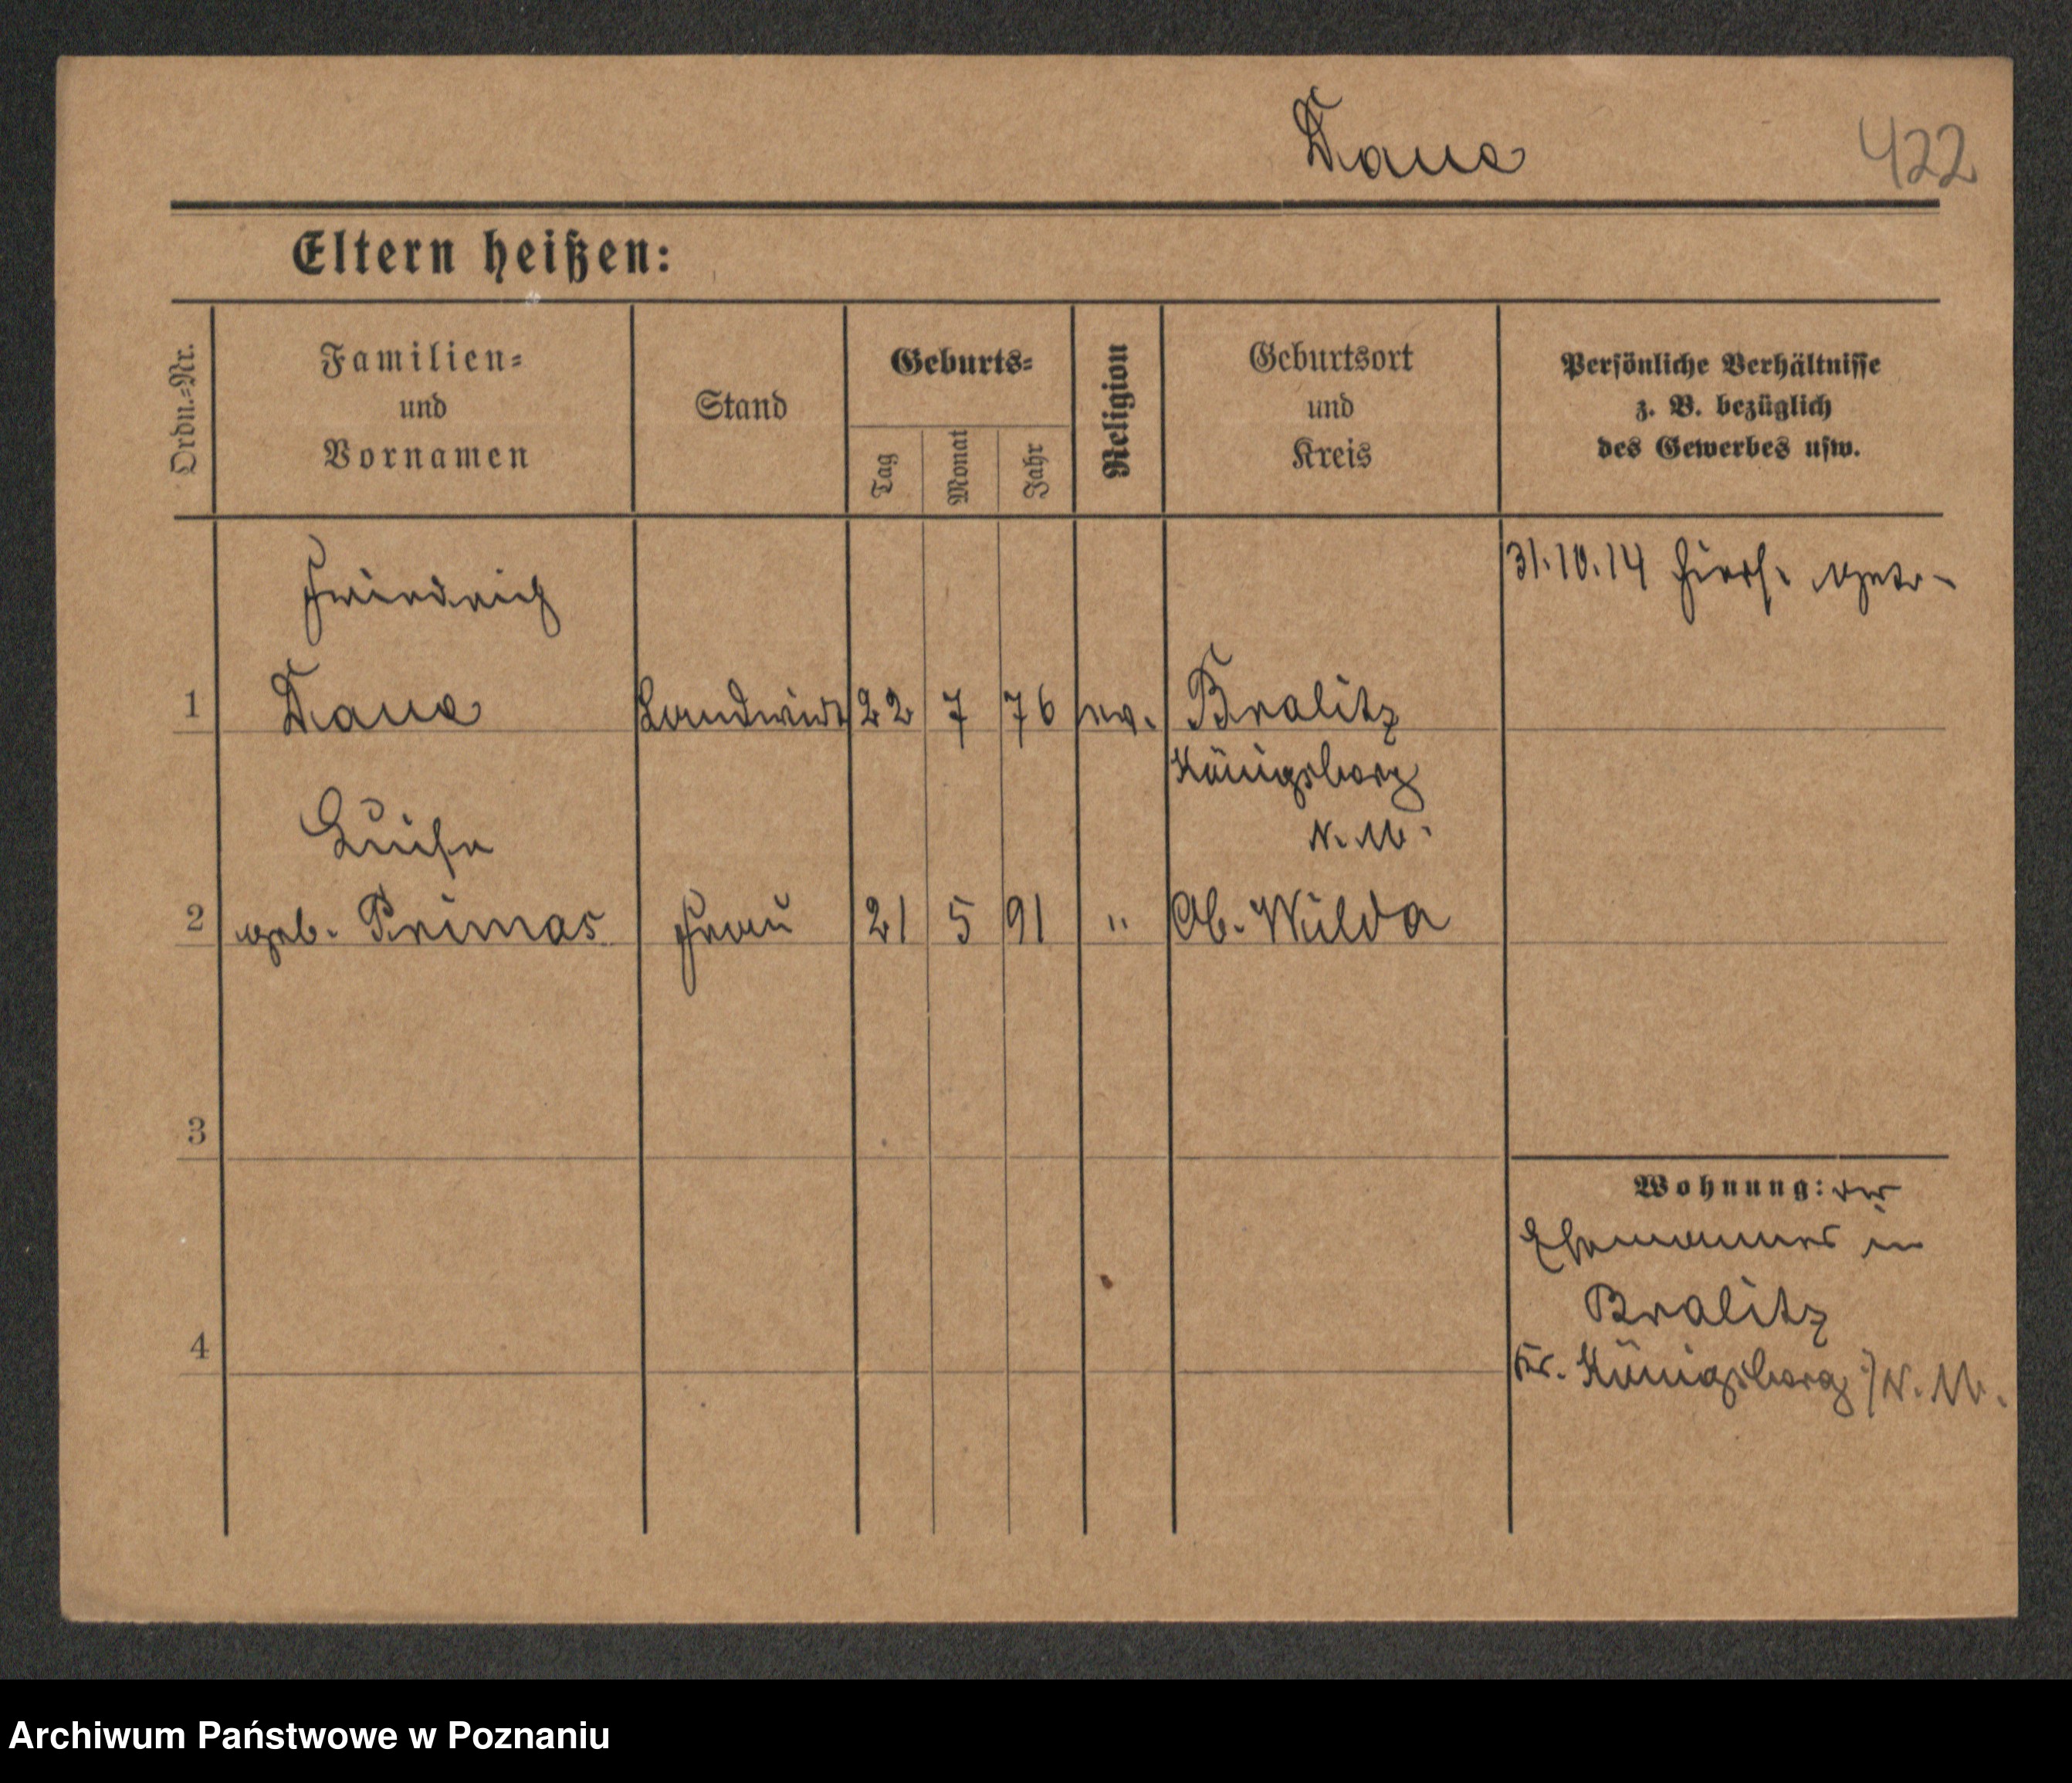 422
Eltern heißen:
Ordn.=Nr.
Familien=
und
Vornamen
Stand
Geburts=
Tag
Monat
Jahr
Religion
Geburtsort
und
Kreis
Persönliche Verhältnisse
z. B. bezüglich
des Gewerbes usw.
Friedrich
31.10.14 hiers. getr.
1
Landwirt 22 7 76 ev. Bralitz
Königsberg
N. M.
Luise
2 geb. Primas Frau 21 5 91 " Ob. Wilda
3
4
Wohnung: des
Ehemannes in
Bralitz
Kr. Königsberg i/N. M.
Archiwum Państwowe w Poznaniu